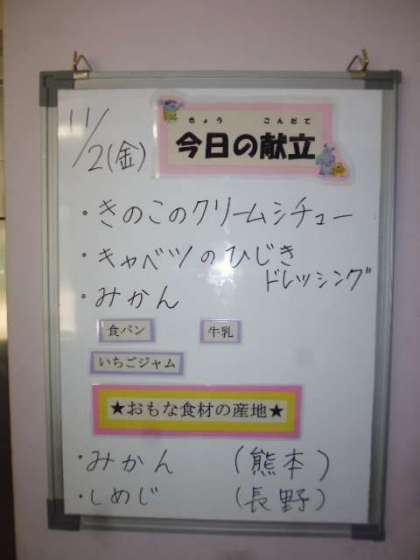 11/2(金)
きょう こんだて
今日の献立
・きのこのクリームシチュー
・キャベツのひじき
ドレッシング
・みかん
食パン 牛乳
いちごジャム
★おもな食材の産地★
・みかん (熊本)
・しめじ (長野)